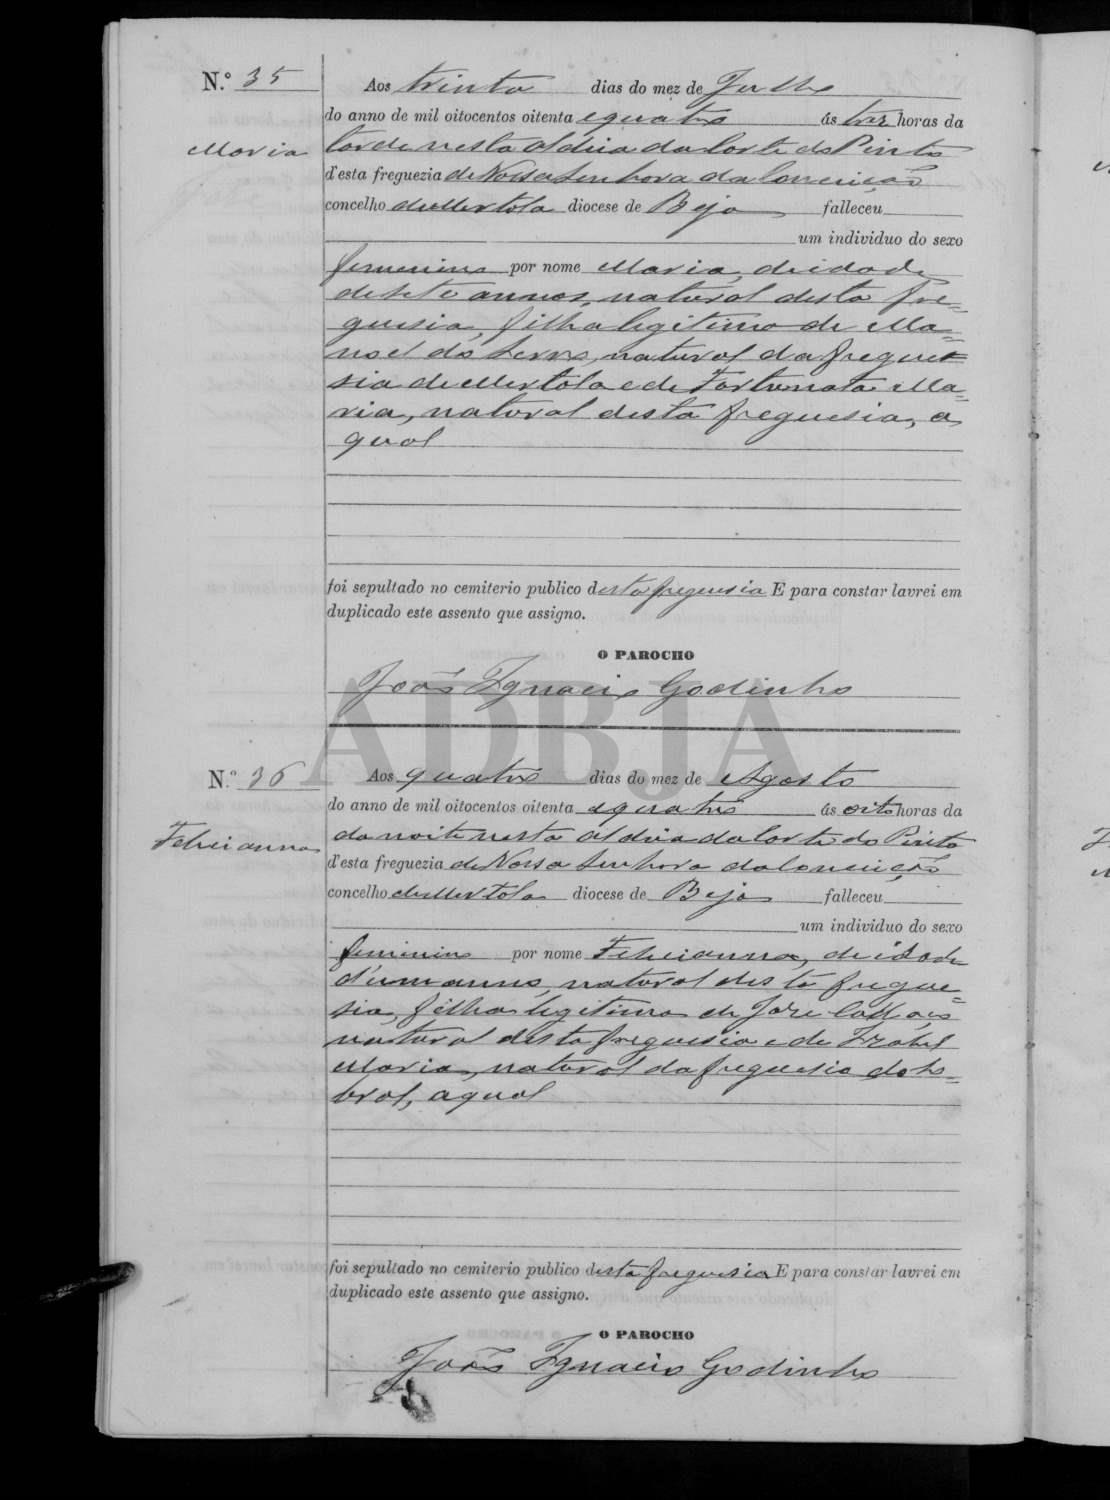 N.º 35
Aos trinta dias do mez de Julho
do anno de mil oitocentos oitenta e quatro ás trez horas da
Maria
tarde nesta Aldeia da Corte do Pinto
d'esta freguezia de Nossa Senhora da Conceição
concelho de Mertola diocese de Beja falleceu
um individuo do sexo
femenino por nome Maria, de idade
de sete annos, natural desta fre=
guesia, filha legitima de Ma=
noel da Serra, natural da fregue=
sia de Mertola e de Fortunata Ma=
ria, natural desta freguesia, a
qual
foi sepultado no cemiterio publico desta freguesia E para constar lavrei em
duplicado este assento que assigno.
O PAROCHO
João Ignacio Godinho
ADBJA
N.º 36
Aos quatro dias do mez de Agosto
do anno de mil oitocentos oitenta e quatro ás oito horas da
Felicianna
da noite nesta Aldeia da Corte do Pinto
d'esta freguezia de Nossa Senhora da Conceição
concelho de Mertola diocese de Beja falleceu
um individuo do sexo
feminino por nome Felicianna, de idade
d'um anno, natural desta fregue=
sia, filha legitima de José
natural desta freguesia e de Izabel
Maria, natural da freguesia do So=
bral, a qual
foi sepultado no cemiterio publico desta freguesia E para constar lavrei em
duplicado este assento que assigno.
O PAROCHO
João Ignacio Godinho